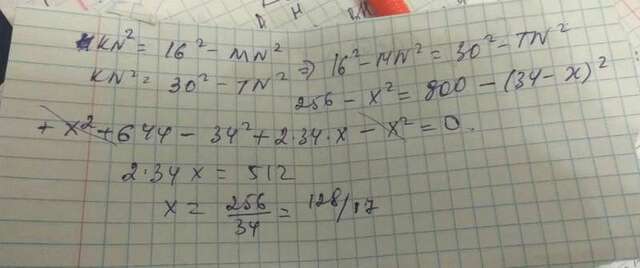 KN² = 16² - MN²
KN² = 30² - TN² ⇒ 16² - MN² = 30² - TN²
256 - x² = 900 - (34 - x)²
+ x² + 644 - 34² + 2·34·x - x² = 0.
2·34x = 512
x = 256/34 = 128/17